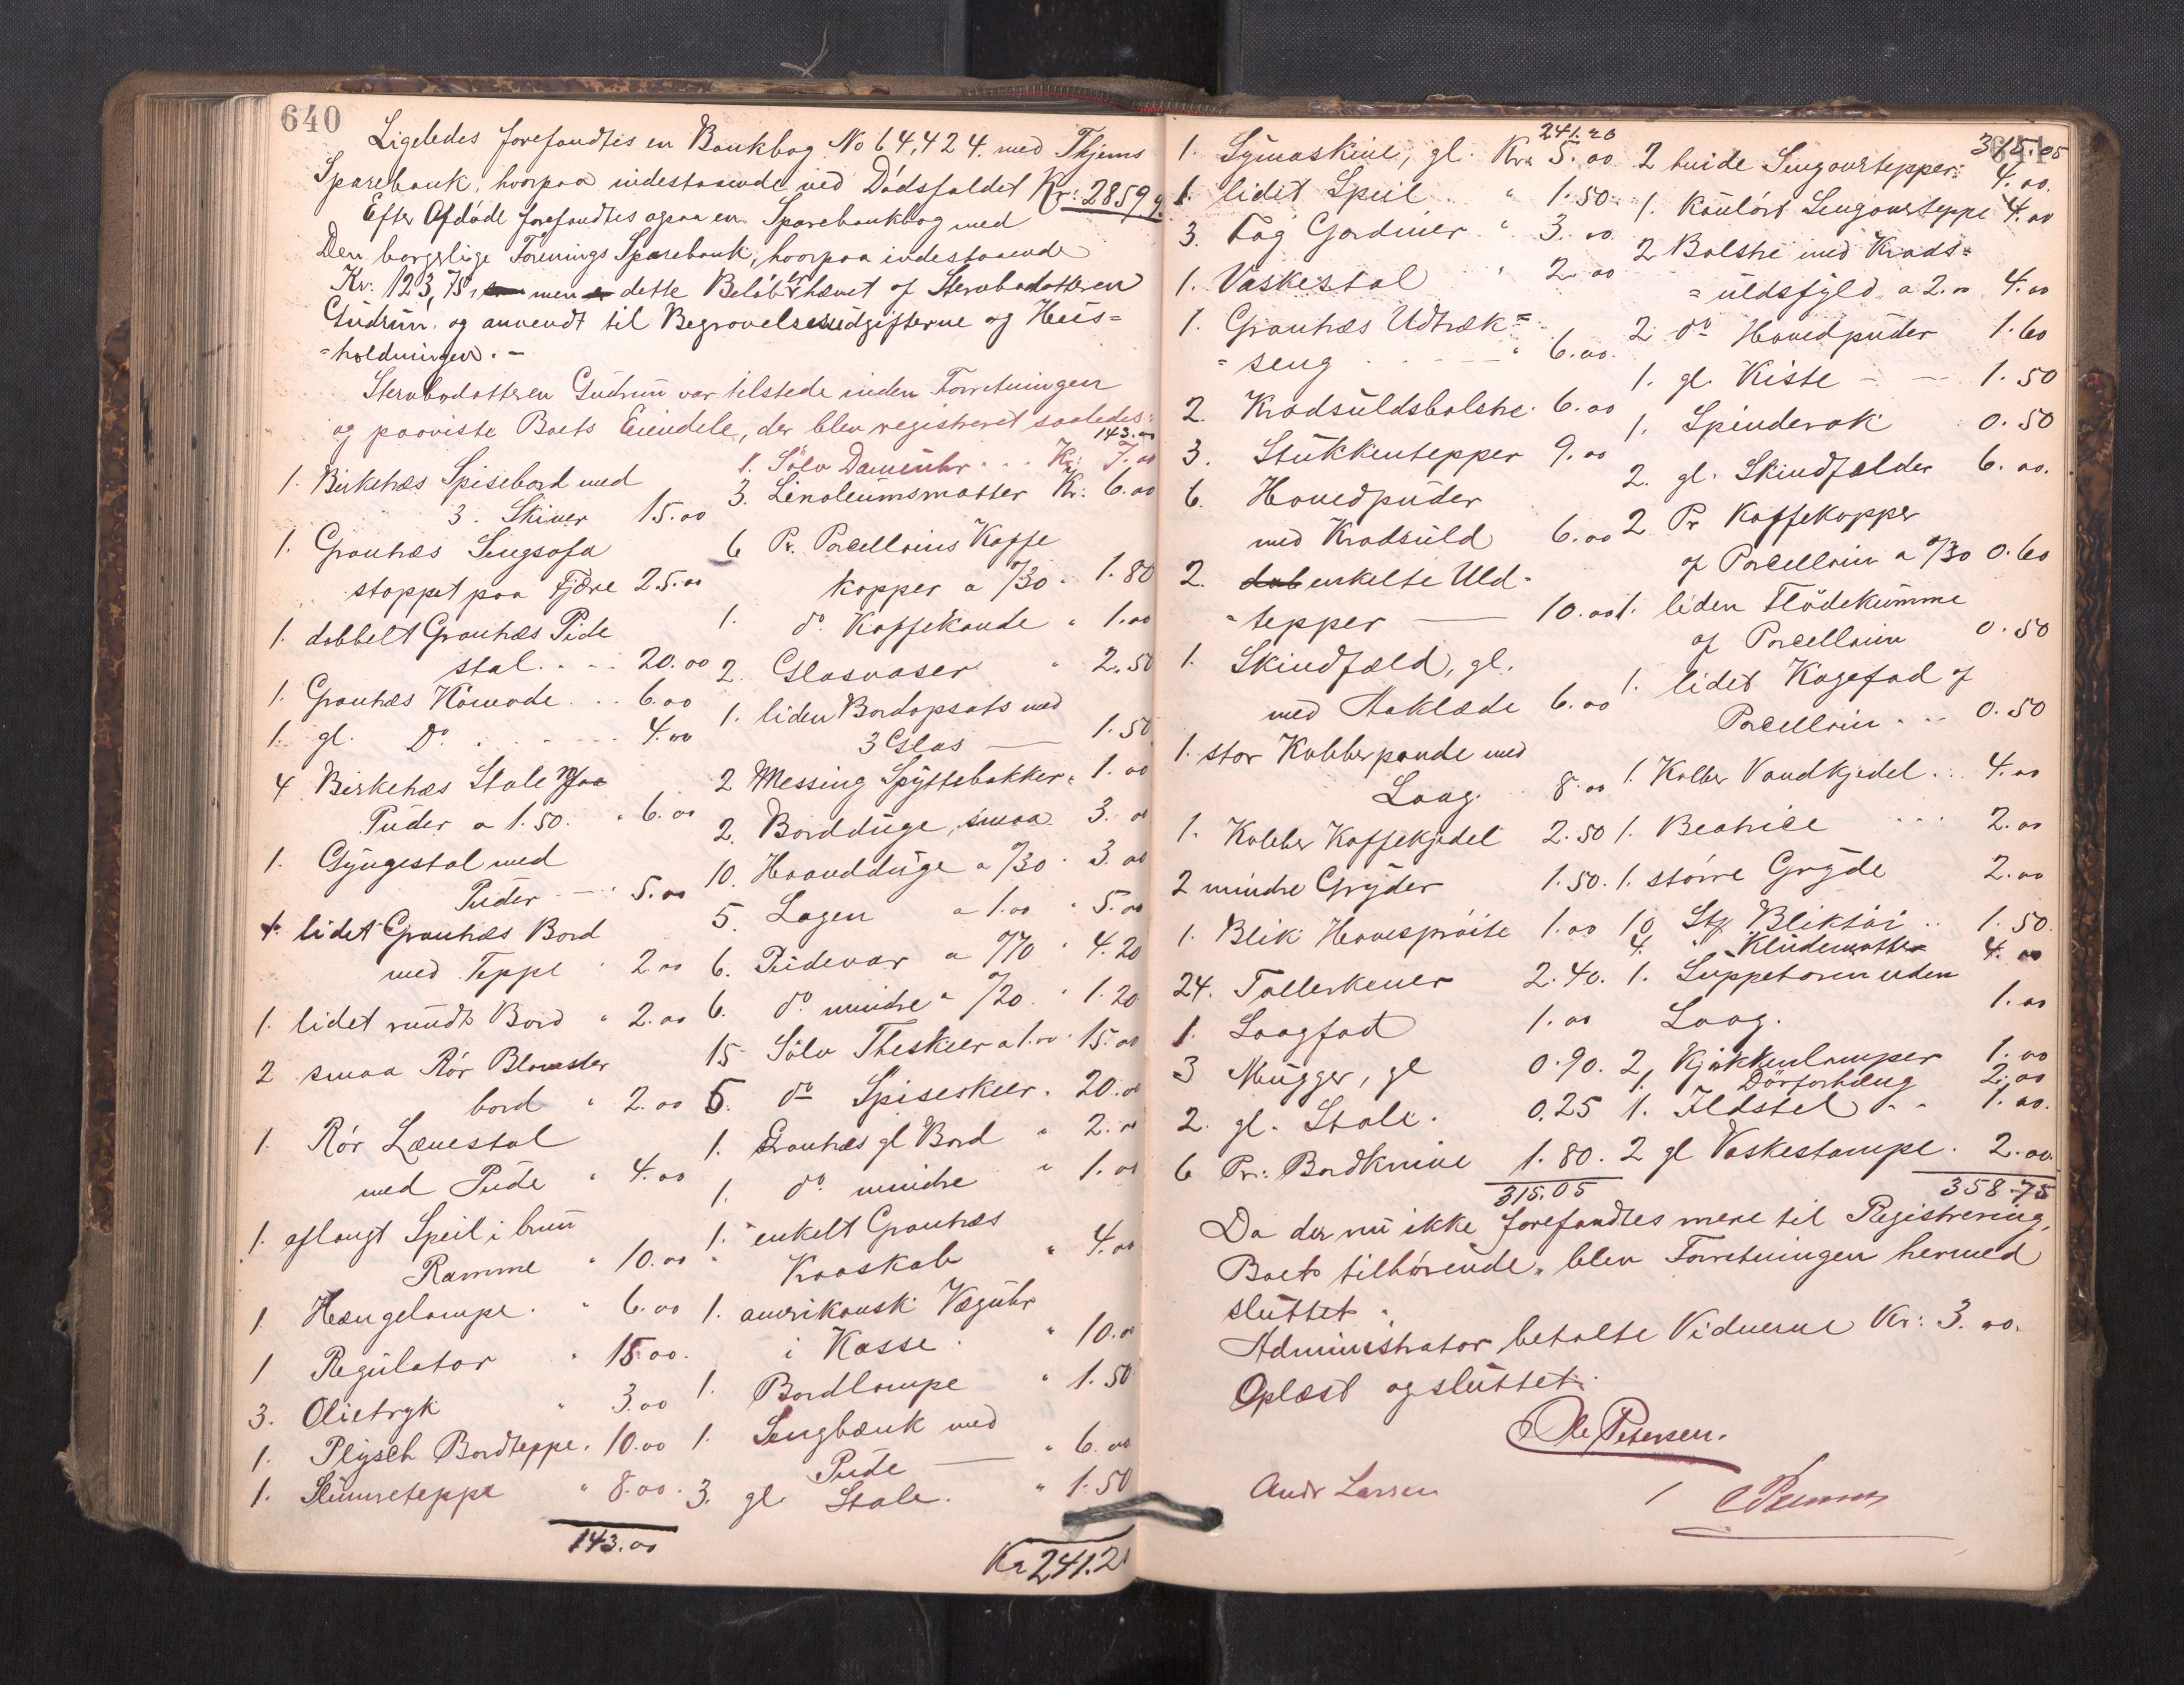 640
Ligeledes forefandtes en Bankbog No 64,424. med Thjems
Sparebank, hvorpaa indestaaende ved Dödsfaldet Kr: 2859
Efter Afdöde forefandtes ogsaa en Sparebankbog med
Den borgelige Forenings Sparebank, hvorpaa indestaaende
Kr: 123,75, men dette Belöb er hævet af Stervbodatteren
Gudrun og anvendt til Begravelsesudgifterne og Huus=
=holdningen. -
Stervbodatteren Gudrun var tilstede under Forretningen
og paaviste Boets Eiendele, der blev registreret saaledes:
1. Birketræs Spisebord med
3. Skiver 15.00
1. Grantræs Sengsofa
stoppet paa Fjære 25.00
1. dobbelt Grantræs Pide
stal. . . . 20.00
1. Grantræs Komode . . . 6.00
1. gl. Do . . . . . 4.00
4 Birketræs Stole
Puder a 1.50. " 6.00
1. Gyngestol med
Puder — " 5.00
1. lidet Grantræs Bord
med Teppe " 2.00
1. lidet rundt Bord " 2.00
2 smaa Rör Blomster
bord " 2.00
1. Rör Lænestol
med Pude " 4.00
1. aflangt Speil i brun
Ramme " 10.00
1 Hængelampe. " 6.00
1 Regulator " 15.00.
3. Olietryk " 3.00
1. Plysch Bordteppe. 10.00
1. Slumreteppe " 8.00.
143.00
143.00
1. Sölv Dameuhr. . . Kr: 7.00
3. Linoleumsmatter Kr: 6.00
6 Pr. Porcellains Kaffe
kopper a /30. 1.80
1. do. Kaffekande " 1.00
2. Glasvaser " 2.50
1. liden Bordopsats med
3 Glas — 1.50
2 Messing Spyttebakker " 1.00
2. Bordduge, smaa 3.00
10. Haandduge a /30 " 3.00
5. Lagen a 1.00 " 5.00
6. Pudevar a /70 " 4.20
6. do mindre a /20. " 1.20
15 Sölv Theskeer a 1.00 " 15.00
5. do Spiseskeer. 20.00
1. Grantræs gl Bord " 2.00
1. do mindre " 1.00
1. enkelt Grantræs
Kraaskab " 4.00
1. amerikansk Væguhr
i Kasse. " 10.00
1. Bordlampe " 1.50
1. Sengbænk med
Pude — " 6.00
3. gl. Stole. " 1.50
Kr 241.2
241.20
1. Symaskine, gl. Kr. 5.00
1. lidet Speil " 1.50
3. Fag Gardiner " 3.00
1. Vaskestol " 2.00
1. Grantræs Udtræk=
=seng . . . " 6.00.
2. Kradsuldsbolstre. 6.00
3. Stukkentepper 9.00
6. Hovedpuder
med Kradsuld 6.00
2. enkelte Uld-
-tepper — 10.00
1. Skindfæld, gl.
med Aaklæde 6.00
1. stor Kobberpande med
Laag. 8.00
1. Kobber Kaffekjedel 2.50
2 mindre Gryder 1.50.
1. Blik Havespröite 1.00
24. Tallerkener 2.40.
1. Laagfad 1.00
3 Mugger, gl 0.90.
2. gl. Stole. 0.25
6 Pr: Bordknive 1.80.
315.05
315.05
2 hvide Sengovertepper: 4.00.
1. koulört Sengoverteppe 4.00
2 Bolstre med Krads=
=uldsfyld a 2.00 4.00
2. do Hovedpuder 1.60
1. gl. Kiste — 1.50
1. Spinderok 0.50
2. gl. Skindfælder 6.00.
2 Pr Kaffekopper
af Porcellain a /30 0.60
1. liden Flödekumme
af Porcellain 0.50
1. lidet Kagefad af
Porcellain . . . 0.50
1. Kobber Vandkjedel. . . 4.00
1. Beatrice . . . 2.00
1. större Gryde 2.00
10 Stk Bliktöi . . 1.50.
4. " Kludematter 4.00
1. Suppeterrin uden
Laag. 1.00
2, Kjökkenlamper 1.00
1. Dörforhæng 2.00
1. Ildstel . . 1.00.
2 gl Vaskestampe. 2.00
358.75
Da der nu ikke forefandtes mere til Registrering,
Boet tilhörende, blev Forretningen hermed
sluttet.
Administrator betalte Vidnerne Kr: 3.00.
Oplæst og sluttet.
Ole Petersen.
Andr Larsen